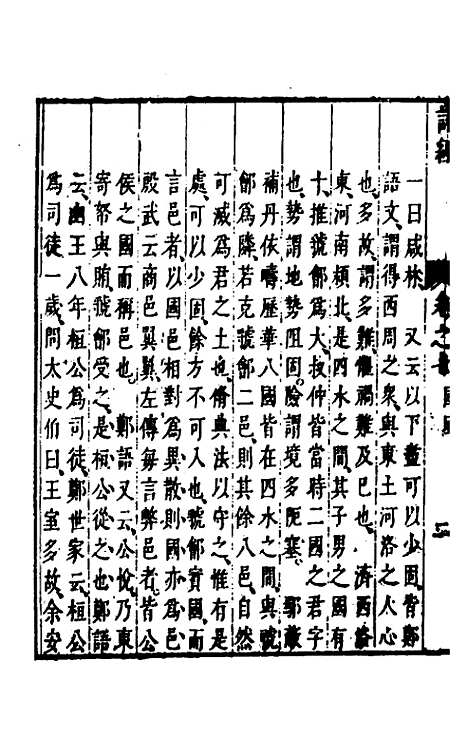 一曰咸林 又云以下盡可以少固皆鄭
語文謂得西周之眾與東土河洛之人心
也多故謂多難懼禍難及巳也 濟西洛
東河南頴北是四水之間其子男之國有
十推虢鄶爲大叔仲皆當時二國之君字
也勢謂地勢阻固險謂境多阨塞 鄢蔽
補丹依疇歷華八國皆在四水之間與虢
鄶爲隣若克虢鄶二邑則其餘八邑自然
可滅爲君之土也脩典法以守之惟有是
處可以少固餘方不可入也虢鄶實國而
言邑者以國邑相對爲異散則國亦爲邑
殷武云商邑翼翼左傳每言弊邑者皆公
侯之國而稱邑也 鄭語又云公悅乃東
寄帑與賄虢鄶受之是桓公從之也鄭語
云幽王八年桓公爲司徒鄭世家云桓公
爲司徒一歲問太史伯曰王室多故余安